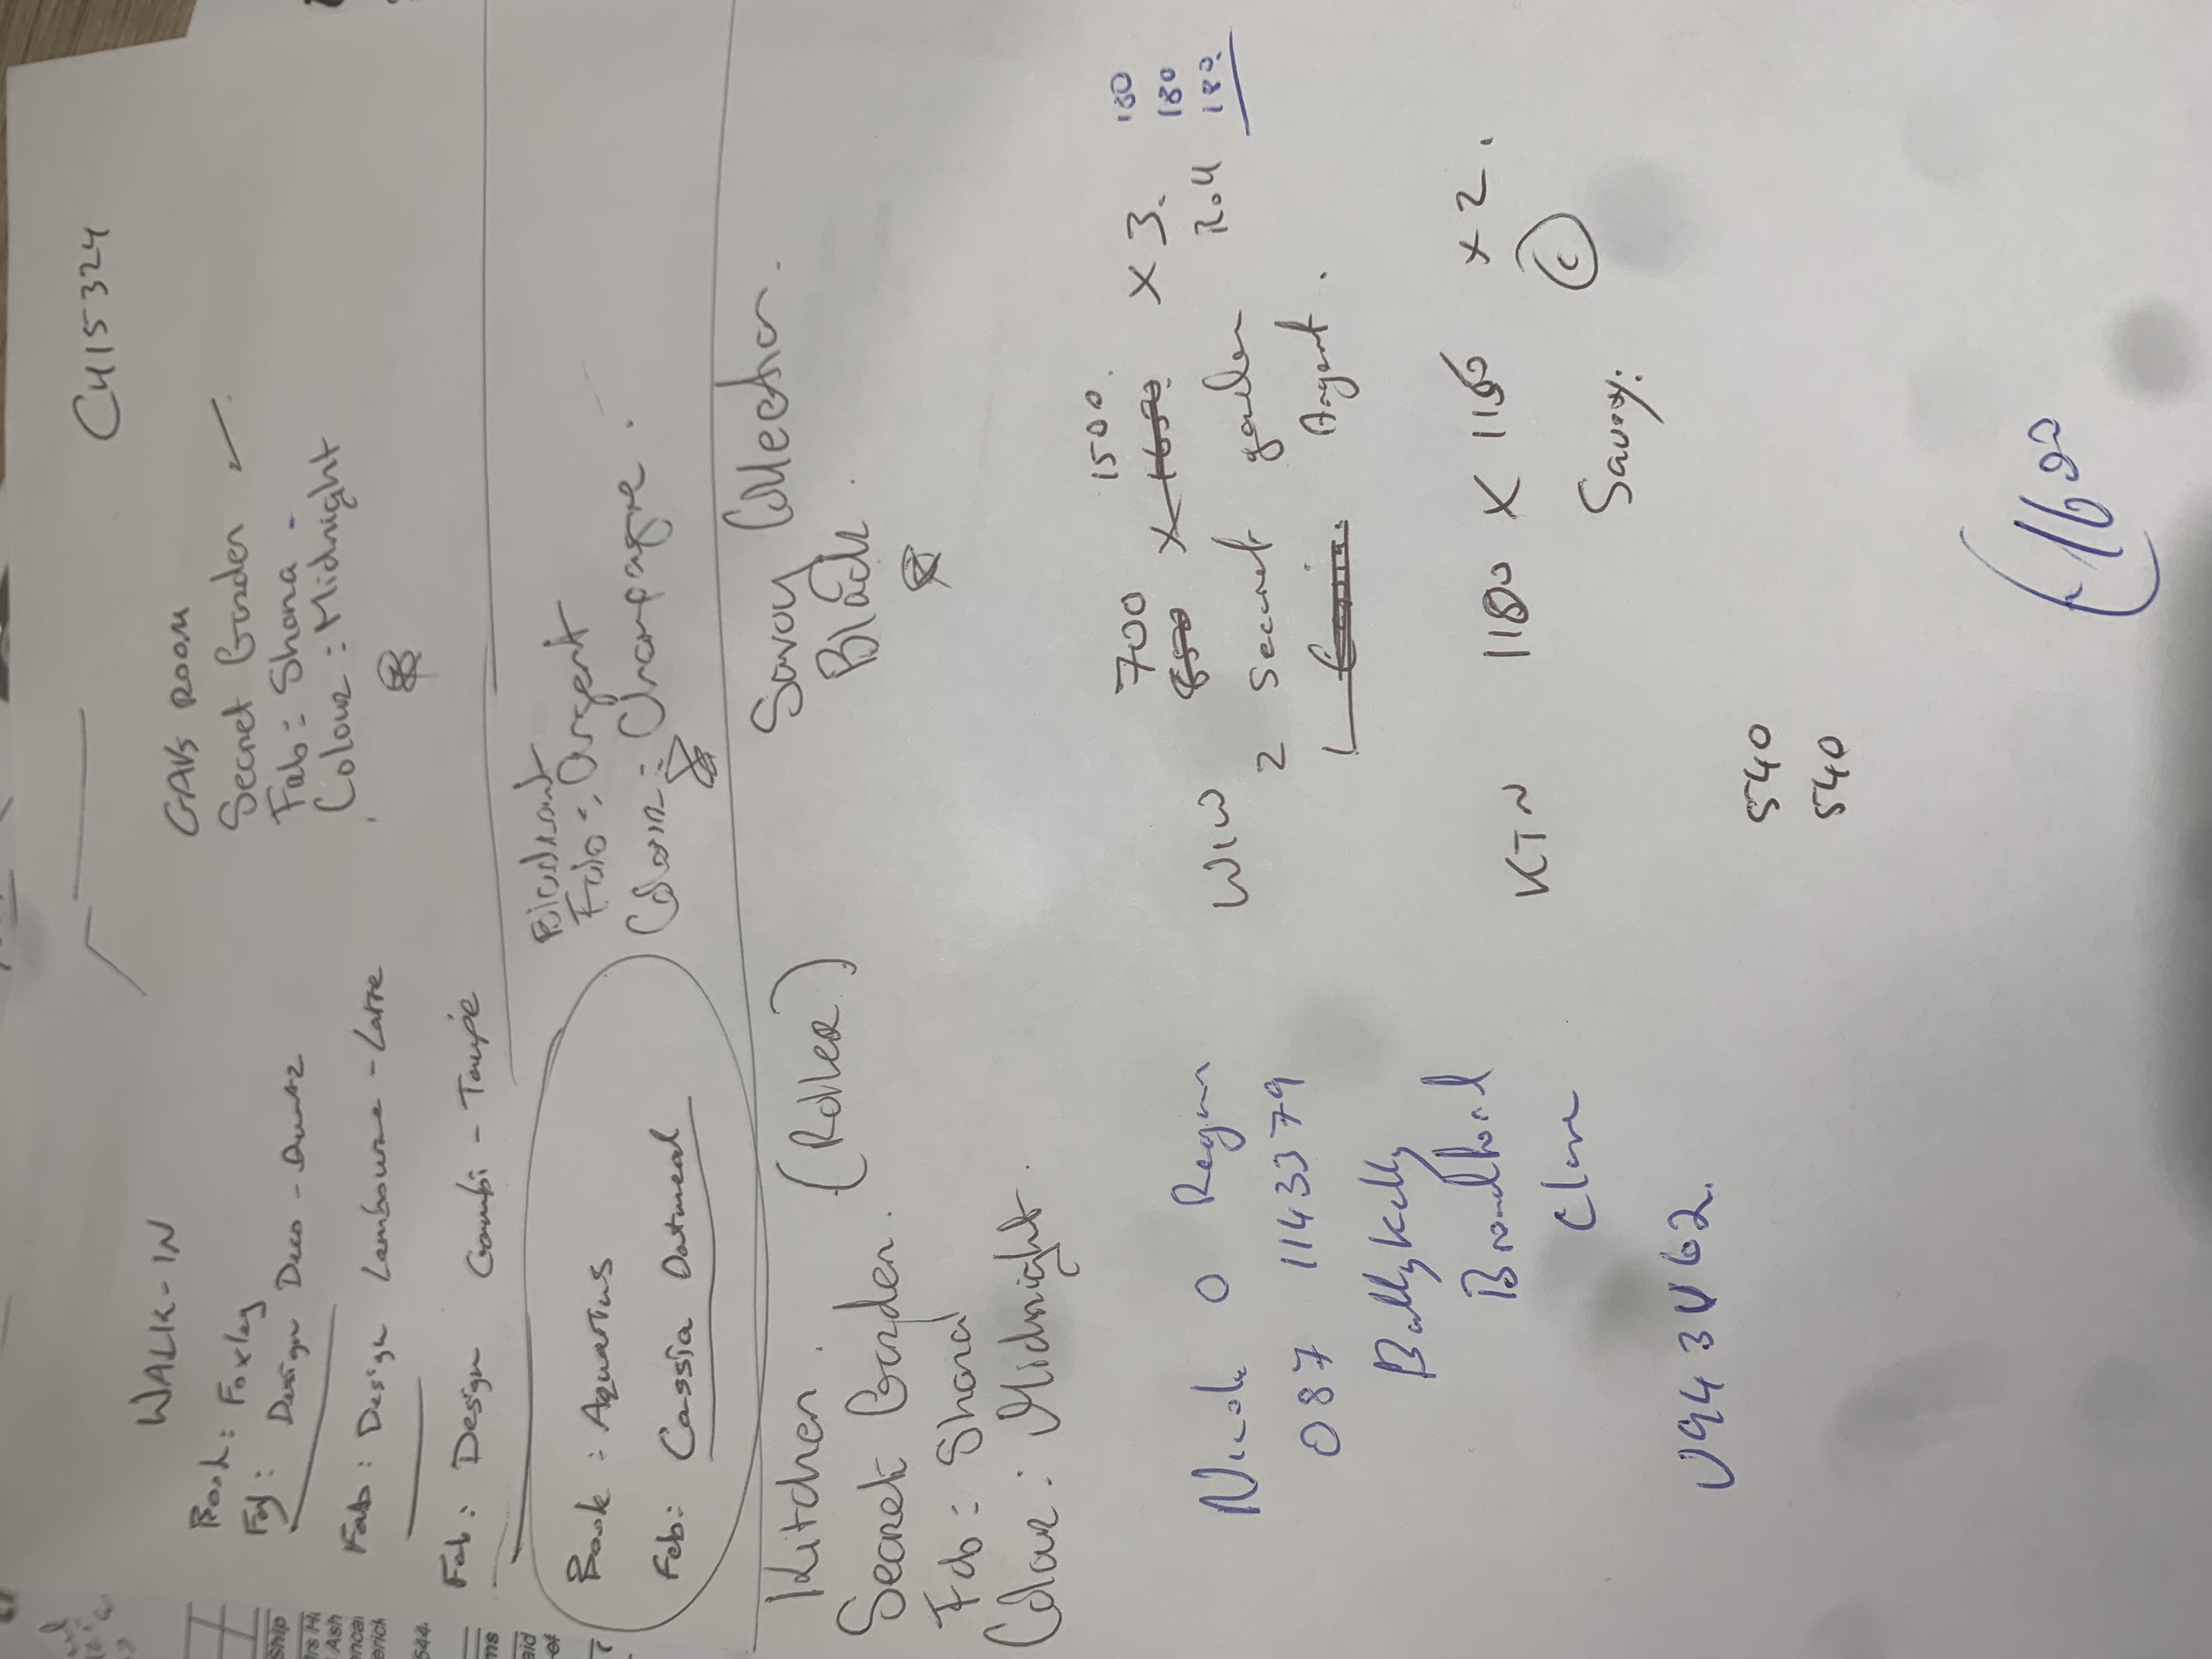 CH15324
WALK-IN
Book: Foxley
Fab: Design Deco -
Fab: Design Lambourne - Latte
Fab: Design Combi - Taupe
GAVS ROOM
Secret Garden ✓
Fab: Shana -
Colour: Midnight
Book: Aquarius
Fab: Cassia Oatmeal
Fab: Argent
Colour: Champagne.
Kitchen. (Roller)
Secret Garden.
Fab: Shana
Colour: Midnight.
Savoy Collection.
Black.
Nicola O Regan
087 1143379
Ballykelly
Broadford
Clare
V94 3V62.
1500.
700 x 1650. x 3.
WIW
2 Secret garden Roll
Argent.
180
180
180.
KTN 1180 x 1150 x 2.
Savoy. C
540
540
1620
ship
544.